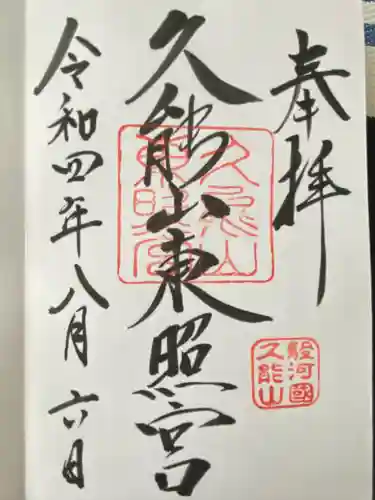 奉拝
久能山東照宮
久能山東照宮
駿河國
久能山
令和四年八月六日